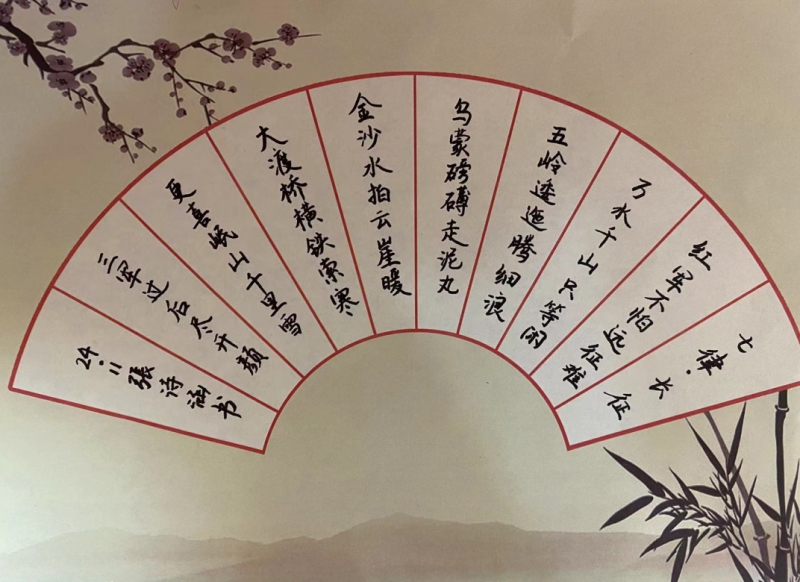 七律·长征
红军不怕远征难
万水千山只等闲
五岭逶迤腾细浪
乌蒙磅礴走泥丸
金沙水拍云崖暖
大渡桥横铁索寒
更喜岷山千里雪
三军过后尽开颜
24.11張诗涵书